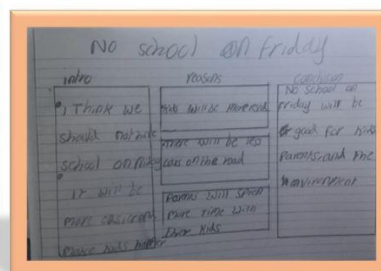 No school on Friday
intro
reasons
conclusion
I Think we
should not have
school on friday
it will be
more
make kids happier
kids will be more
There will be les
cars on the road
Parents will spend
more time with
their kids
No school on
friday will be
good for kids
Parents and the
environment